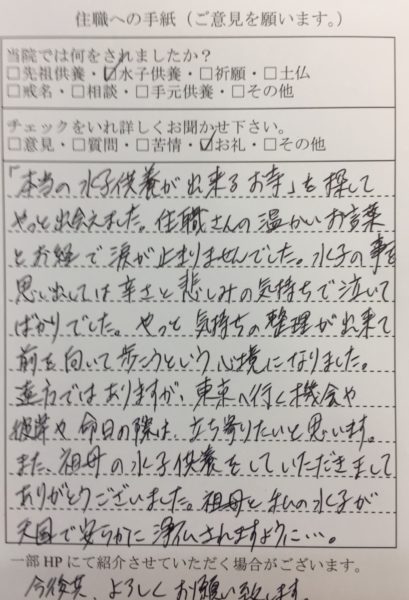 住職への手紙（ご意見を願います。）
当院では何をされましたか？
□先祖供養・☑水子供養・□祈願・□土仏
□戒名・□相談・□手元供養・□その他
チェックをいれ詳しくお聞かせ下さい。
□意見・□質問・□苦情・☑お礼・□その他
「本当の水子供養が出来るお寺」を探して
やっと出会えました。住職さんの温かいお言葉
とお経で涙が止まりませんでした。水子の事を
思い出しては辛さと悲しみの気持ちで泣いて
ばかりでした。やっと気持ちの整理が出来て
前を向いて歩こうという心境になりました。
遠方ではありますが、東京へ行く機会や
彼岸や命日の際は、立ち寄りたいと思います。
また、祖母の水子供養をしていただきまして
ありがとうございました。祖母と私の水子が
天国で安らかに浄仏されますように…。
一部HPにて紹介させていただく場合がございます。
今後共、よろしくお願い致します。